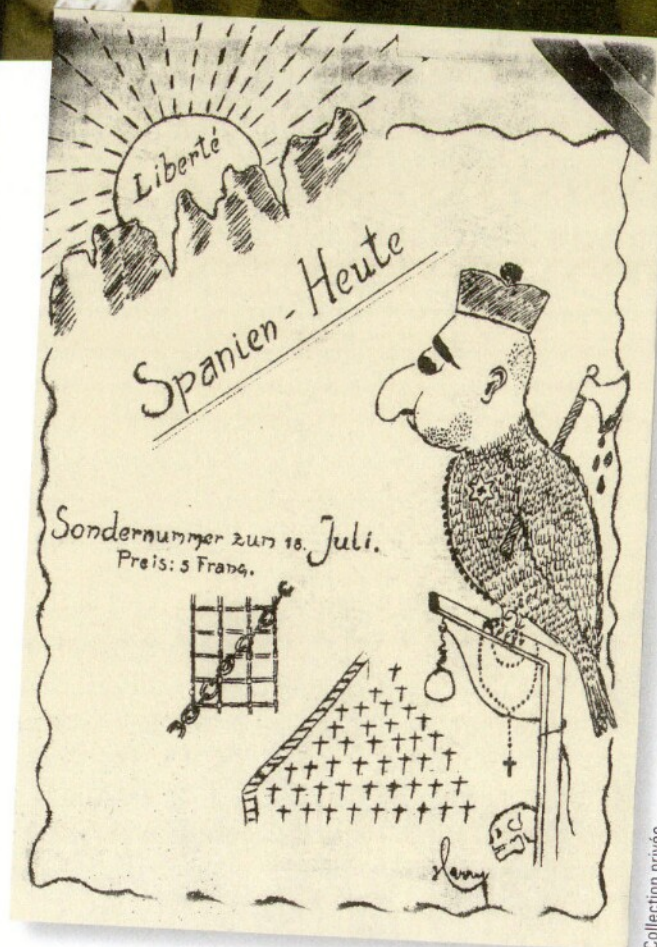 Liberté
Spanien - Heute
Sondernummer zum 18. Juli.
Preis: 5 Franq.
Harry
Collection privée